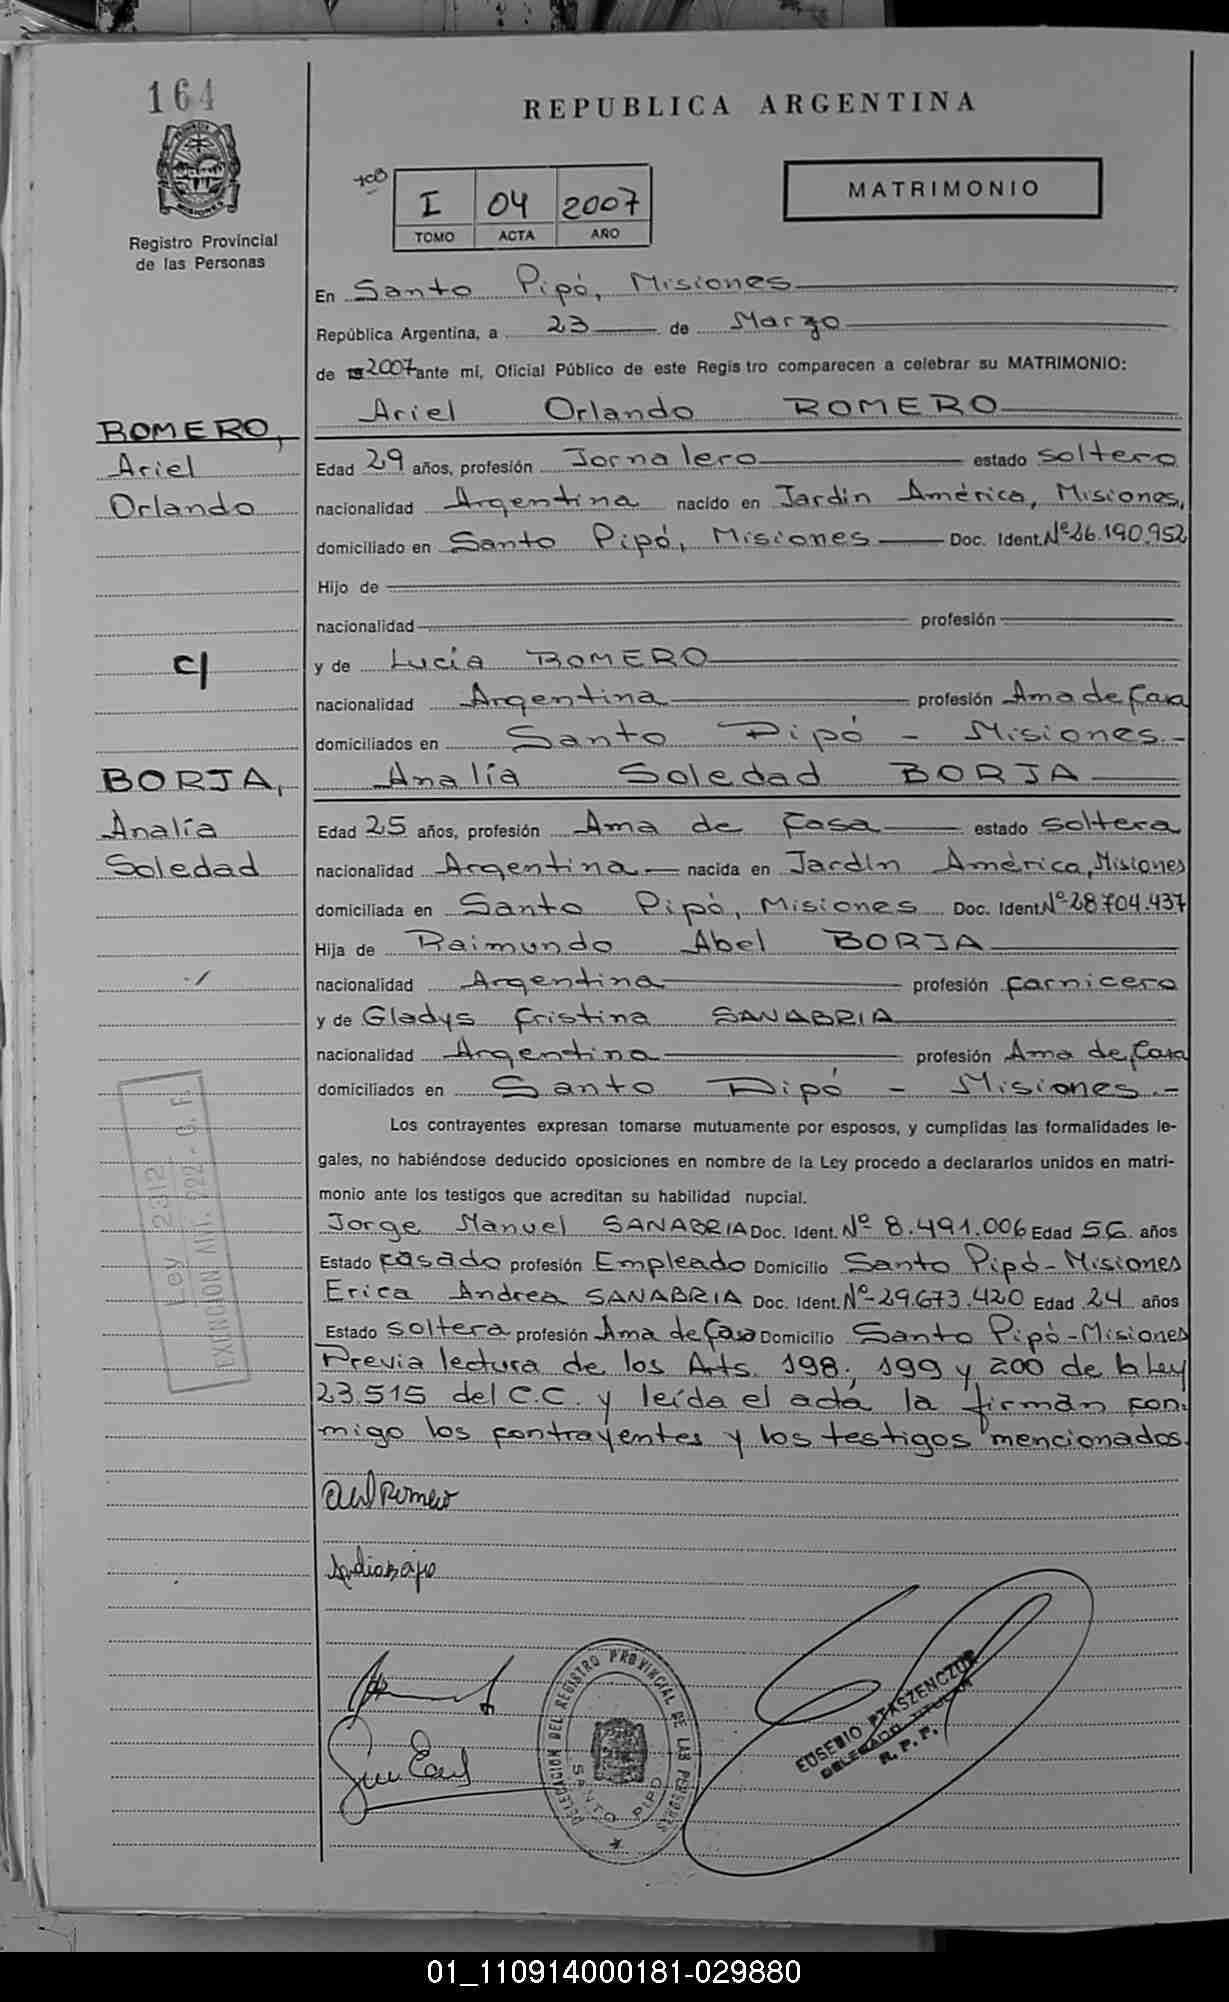 164
REPUBLICA ARGENTINA
I 04 2007
TOMO ACTA AÑO
MATRIMONIO
Registro Provincial
de las Personas
En Santo Pipó, Misiones
República Argentina, a 23 de Marzo
de 2007 ante mí, Oficial Público de este Registro comparecen a celebrar su MATRIMONIO:
Ariel Orlando ROMERO
ROMERO,
Ariel
Orlando
Edad 29 años, profesión Jornalero estado soltero
nacionalidad Argentina nacido en Jardín América, Misiones,
domiciliado en Santo Pipó, Misiones Doc. Ident. Nº 26.190.952
Hijo de
nacionalidad profesión
c/
y de Lucía ROMERO
nacionalidad Argentina profesión Ama de Casa
domiciliados en Santo Pipó - Misiones.-
BORJA,
Analía
Soledad
Analía Soledad BORJA
Edad 25 años, profesión Ama de Casa estado soltera
nacionalidad Argentina nacida en Jardín América, Misiones
domiciliada en Santo Pipó, Misiones Doc. Ident. Nº 28.704.437
Hija de Raimundo Abel BORJA
nacionalidad Argentina profesión Carnicero
y de Gladys Cristina SANABRIA
nacionalidad Argentina profesión Ama de Casa
domiciliados en Santo Pipó - Misiones.-
Los contrayentes expresan tomarse mutuamente por esposos, y cumplidas las formalidades le-
gales, no habiéndose deducido oposiciones en nombre de la Ley procedo a declararlos unidos en matri-
monio ante los testigos que acreditan su habilidad nupcial.
Jorge Manuel SANABRIA Doc. Ident. Nº 8.491.006 Edad 56 años
Estado Casado profesión Empleado Domicilio Santo Pipó-Misiones
Erica Andrea SANABRIA Doc. Ident. Nº 29.673.420 Edad 24 años
Estado soltera profesión Ama de Casa Domicilio Santo Pipó-Misiones
Previa lectura de los Arts. 198, 199 y 200 de la Ley
23.515 del C.C. y leída el acta la firman con-
migo los contrayentes y los testigos mencionados.
Ley 2312
EXENCION Art. 222 - C. F.
Romero
DELEGACION DEL REGISTRO PROVINCIAL DE LAS PERSONAS
SANTO PIPO
EUSEBIO PTASZENCZUK
DELEGADO TITULAR
R. P. P.
01_110914000181-029880